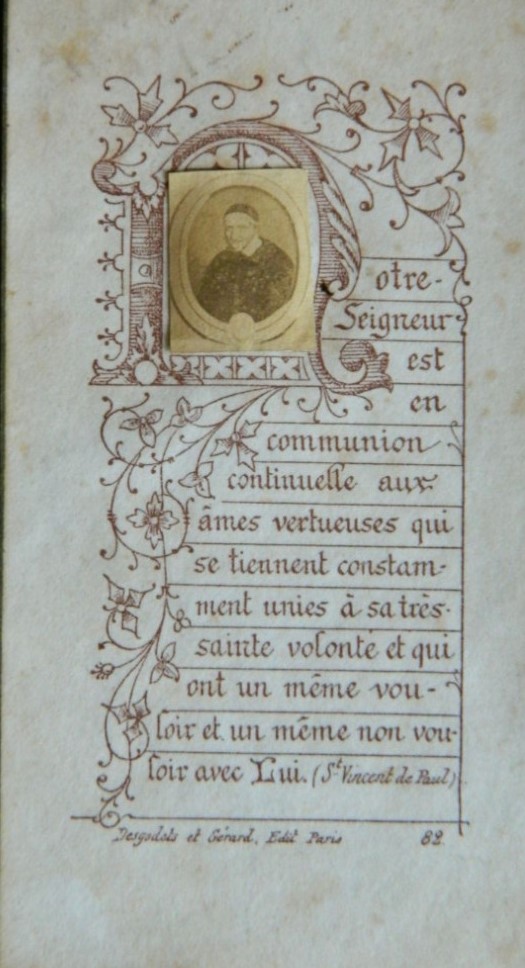 Notre-
Seigneur
est
en
communion
continuelle aux
âmes vertueuses qui
se tiennent constam-
ment unies à sa très-
sainte volonté et qui
ont un même vou-
loir et un même non vou-
loir avec Lui. (St Vincent de Paul)
Desgodets et Gérard, Edit Paris 82.